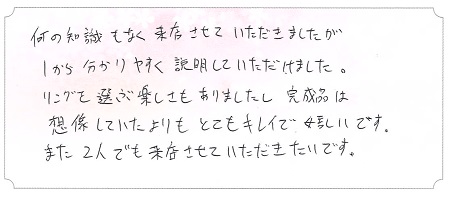 何の知識もなく来店させていただきましたが
1から分かりやすく説明していただけました。
リングを選ぶ楽しさもありましたし完成品は
想像していたよりもとてもキレイで嬉しいです。
また2人でも来店させていただきたいです。